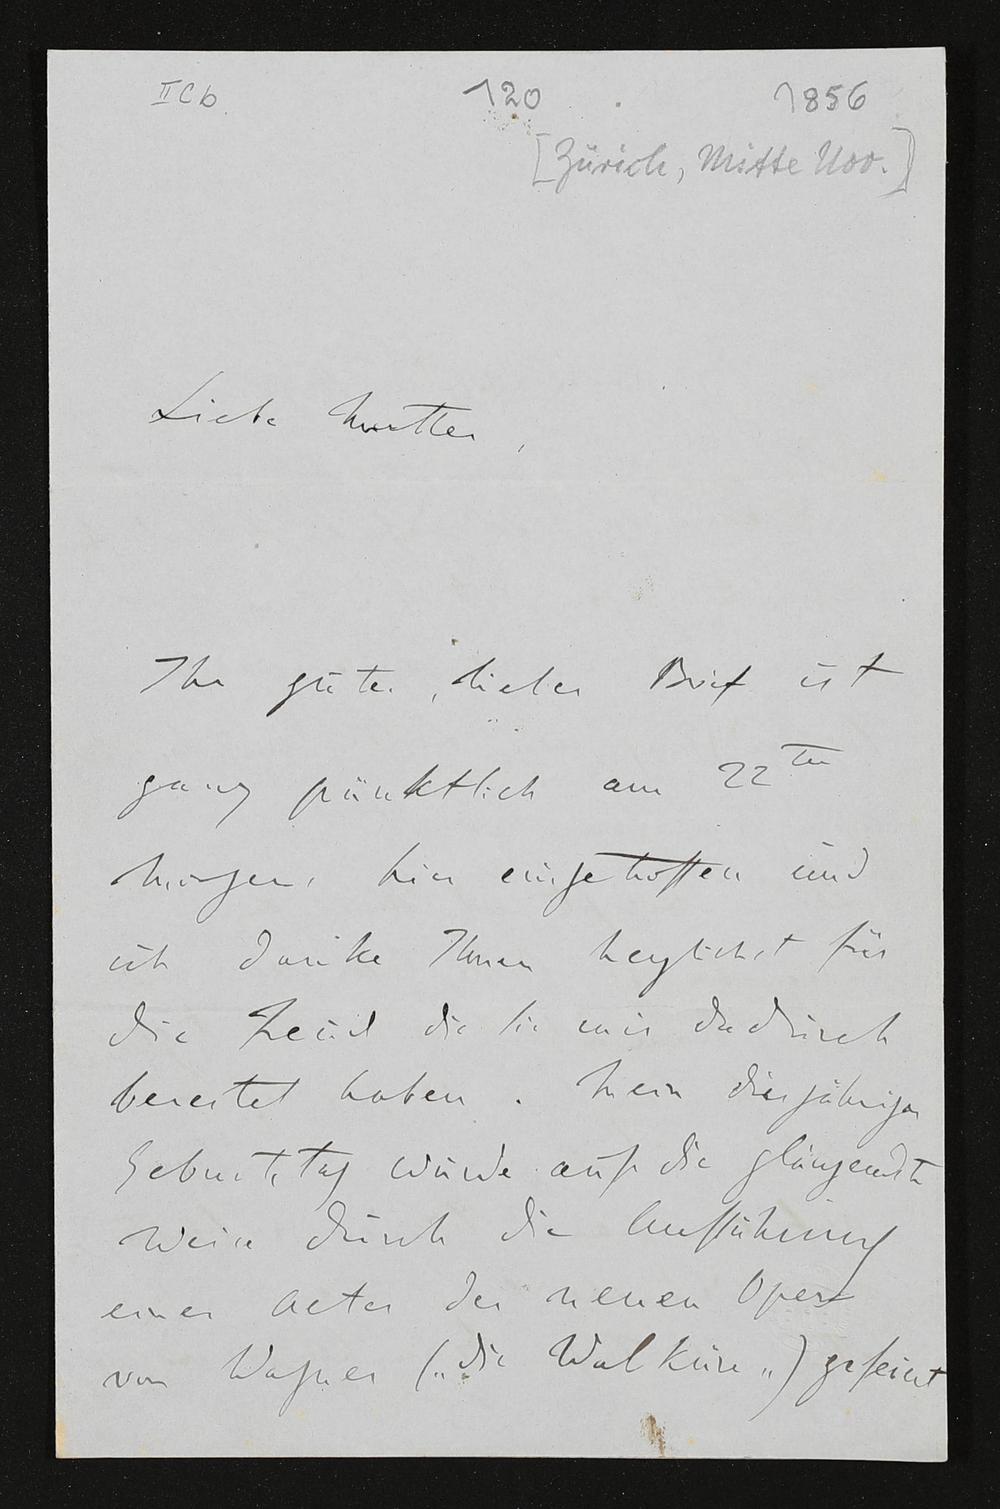 IICb
120
1856
[Zürich, Mitte Nov.]
Liebe Mutter,
Ihr guter, lieber Brief ist
ganz pünktlich am 22ten
Morgens hier eingetroffen und
ich danke Ihnen herzlichst für
die Freud die Sie mir dadurch
bereitet haben. Mein diesjähriger
Geburtstag wurde auf die glänzendste
Weise durch die Aufführung
eines Actes der neuen Oper
von Wagner („die Walküre„) gefeiert